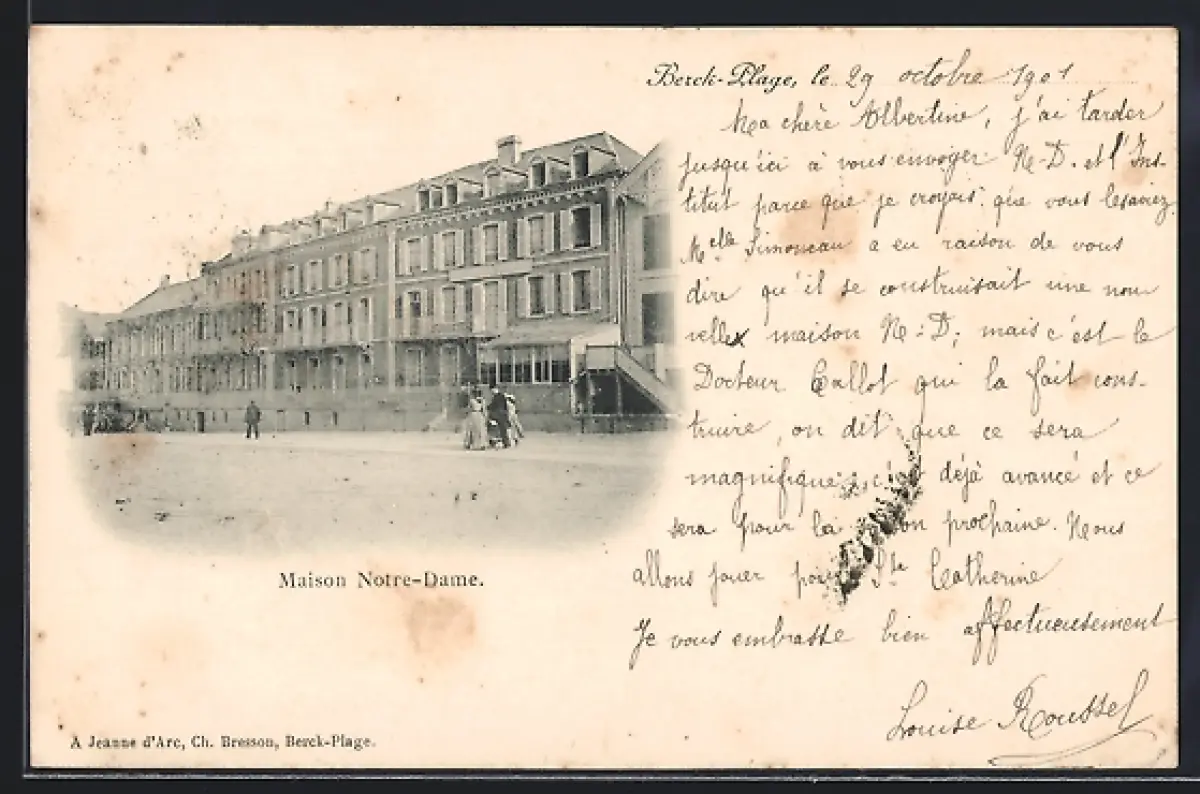 Berck-Plage, le 29 octobre 1901
Ma chère Albertine, j'ai tarder
jusqu'ici à vous envoyer N-D. et l'Ins-
titut parce que je croyais que vous le saviez
Melle Simoneau a eu raison de vous
dire qu'il se construisait une nou
velle maison N-D; mais c'est le
Docteur Callot qui la fait cons-
truire, on dit que ce sera
magnifique; c'est déjà avancé et ce
sera pour la prochaine. Nous
allons jouer pour Ste Catherine
Je vous embrasse bien affectueusement
Louise Roussel
Maison Notre-Dame.
A Jeanne d'Arc, Ch. Bresson, Berck-Plage.